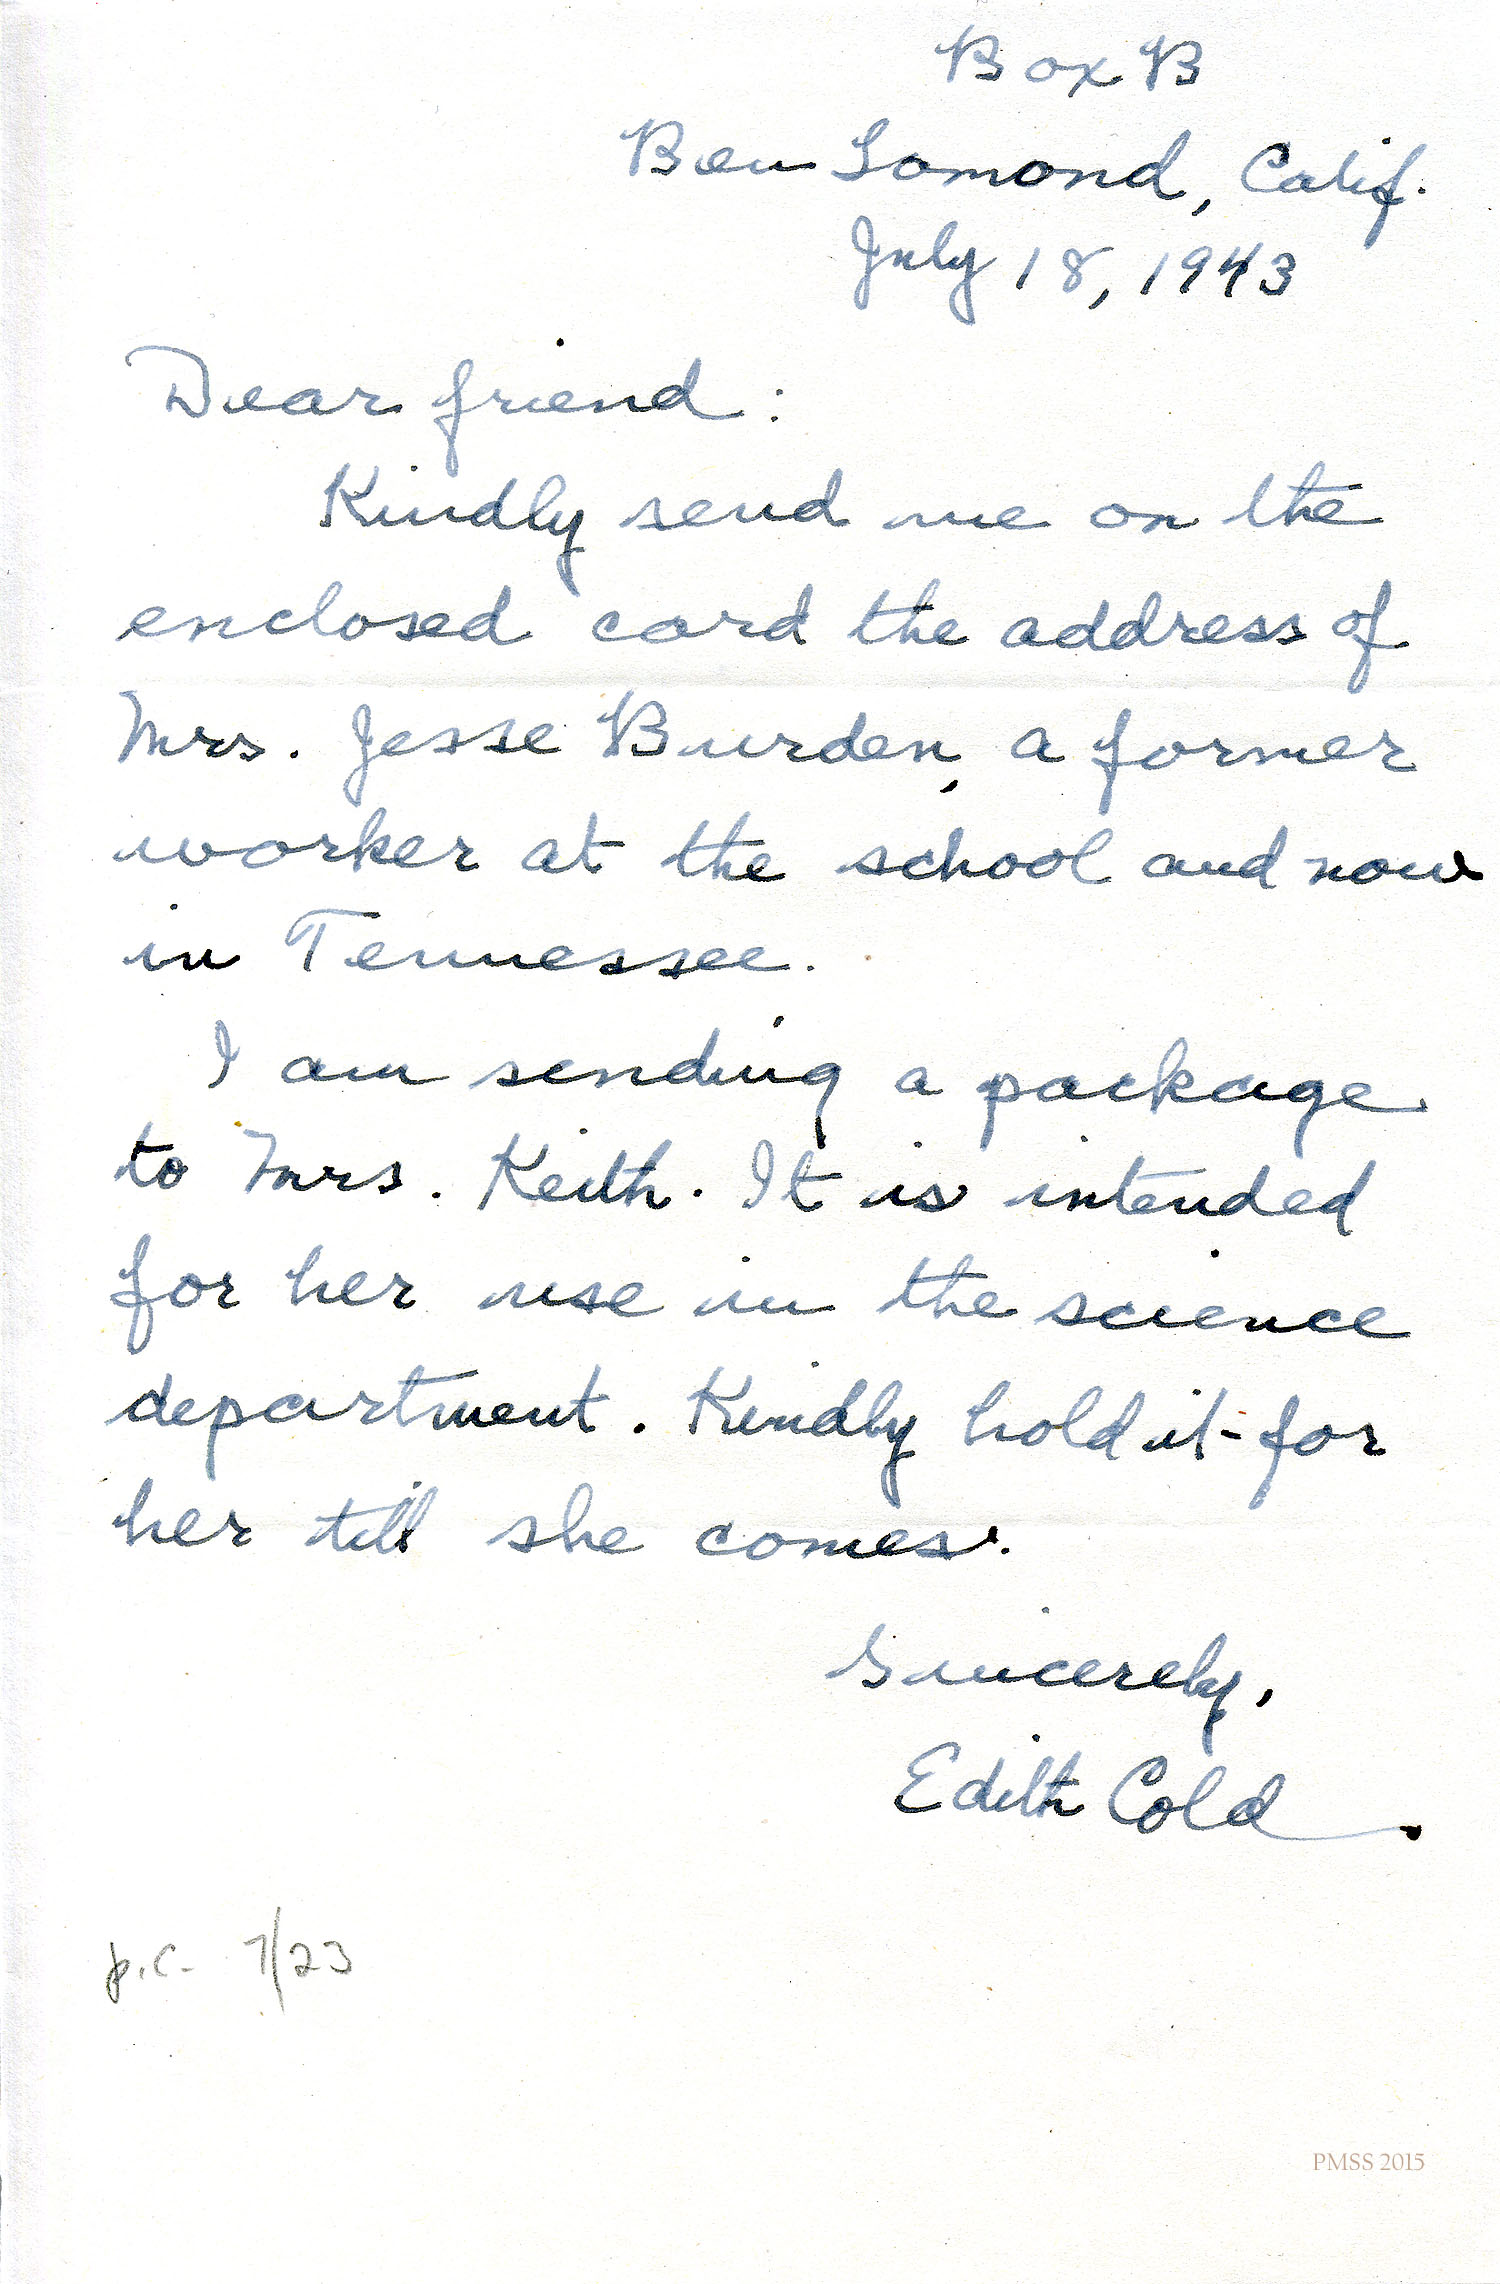 Box B
Ben Lomond, Calif.
July 18, 1943
Dear friend:
Kindly send me on the
enclosed card the address of
Mrs. Jesse Burden, a former
worker at the school and now
in Tennessee.
I am sending a package
to Mrs. Keith. It is intended
for her use in the science
department. Kindly hold it for
her till she comes.
Sincerely,
Edith Cold
p.c. 7/23
PMSS 2015